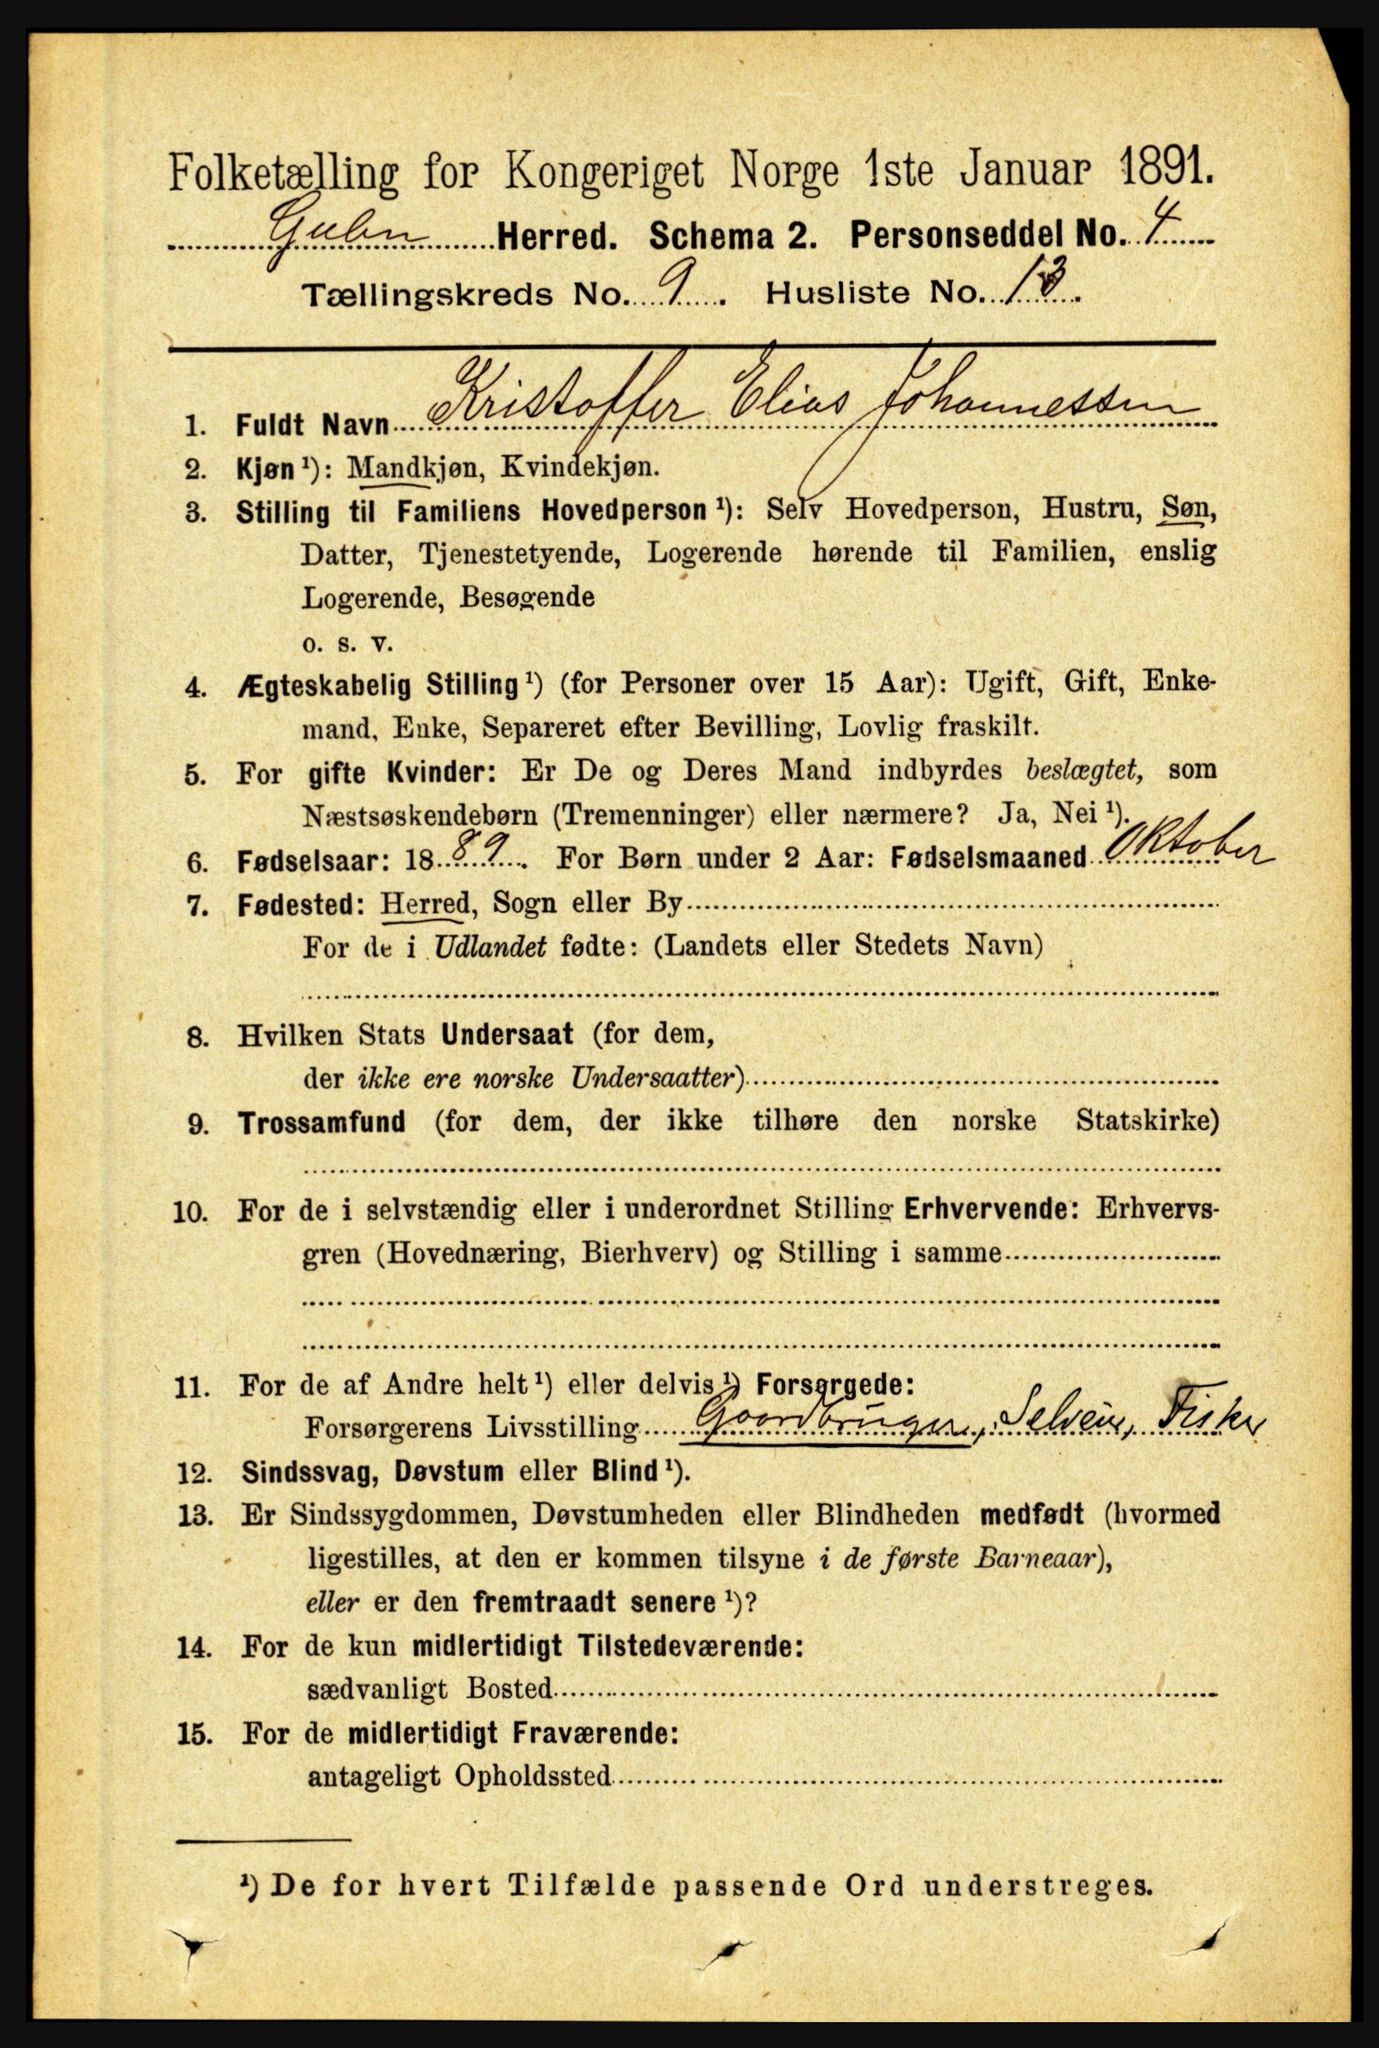 Folketælling for Kongeriget Norge 1ste Januar 1891.
Gulen Herred. Schema 2. Personseddel No. 4
Tællingskreds No. 9. Husliste No. 13.
1. Fuldt Navn Kristoffer Elias Johannessen
2. Kjøn ¹): Mandkjøn, Kvindekjøn.
3. Stilling til Familiens Hovedperson ¹): Selv Hovedperson, Hustru, Søn,
Datter, Tjenestetyende, Logerende hørende til Familien, enslig
Logerende, Besøgende
o. s. v.
4. Ægteskabelig Stilling ¹) (for Personer over 15 Aar): Ugift, Gift, Enke-
mand, Enke, Separeret efter Bevilling, Lovlig fraskilt.
5. For gifte Kvinder: Er De og Deres Mand indbyrdes beslægtet, som
Næstsøskendebørn (Tremenninger) eller nærmere? Ja, Nei ¹).
6. Fødselsaar: 1889. For Børn under 2 Aar: Fødselsmaaned Oktober
7. Fødested: Herred, Sogn eller By
For de i Udlandet fødte: (Landets eller Stedets Navn)
8. Hvilken Stats Undersaat (for dem,
der ikke ere norske Undersaatter)
9. Trossamfund (for dem, der ikke tilhøre den norske Statskirke)
10. For de i selvstændig eller i underordnet Stilling Erhvervende: Erhvervs-
gren (Hovednæring, Bierhverv) og Stilling i samme
11. For de af Andre helt ¹) eller delvis ¹) Forsørgede:
Forsørgerens Livsstilling Gaardbruger, Selveier, Fisker
12. Sindssvag, Døvstum eller Blind ¹).
13. Er Sindssygdommen, Døvstumheden eller Blindheden medfødt (hvormed
ligestilles, at den er kommen tilsyne i de første Barneaar),
eller er den fremtraadt senere ¹)?
14. For de kun midlertidigt Tilstedeværende:
sædvanligt Bosted
15. For de midlertidigt Fraværende:
antageligt Opholdssted
¹) De for hvert Tilfælde passende Ord understreges.